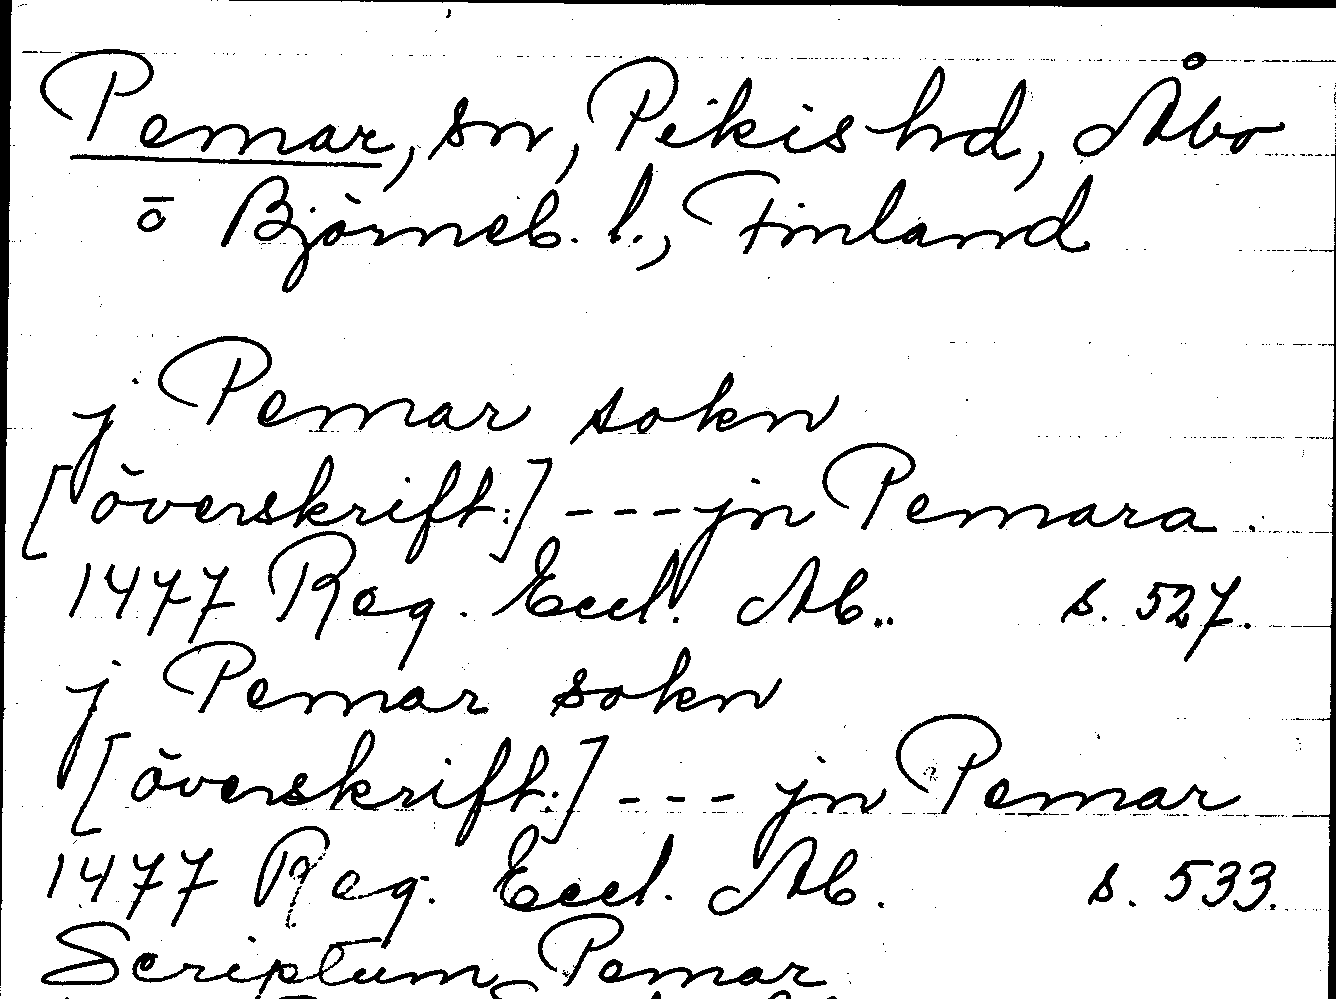 Pemar, sn, Pikis hd, Åbo
o Björneb. l., Finland
j Pemar sokn
[överskrift:] --- jn Pemara
1477 Reg. Eccl. Ab.. s. 527.
j Pemar sokn
[överskrift:] --- jn Pemar
1477 Reg. Eccl. Ab. s. 533.
Scriptum Pemar